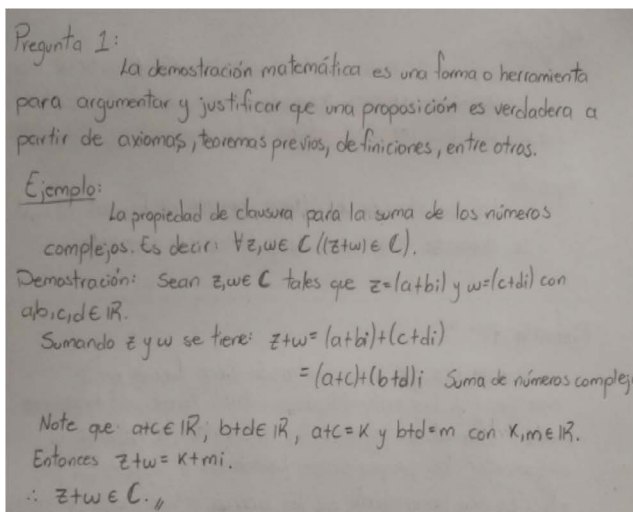 Pregunta 1:
La demostración matemática es una forma o herramienta
para argumentar y justificar que una proposición es verdadera a
partir de axiomas, teoremas previos, definiciones, entre otros.
Ejemplo:
La propiedad de clausura para la suma de los números
complejos. Es decir: ∀z,w∈ ℂ ((z+w) ∈ ℂ).
Demostración: Sean z,w∈ ℂ tales que z=(a+bi) y w=(c+di) con
a,b,c,d ∈ ℝ.
Sumando z y w se tiene: z+w= (a+bi)+(c+di)
= (a+c)+(b+d)i Suma de números complej
Note que a+c∈ ℝ; b+d∈ ℝ, a+c=K y b+d=m con K,m∈ ℝ.
Entonces z+w= K+mi.
∴ z+w ∈ ℂ.//